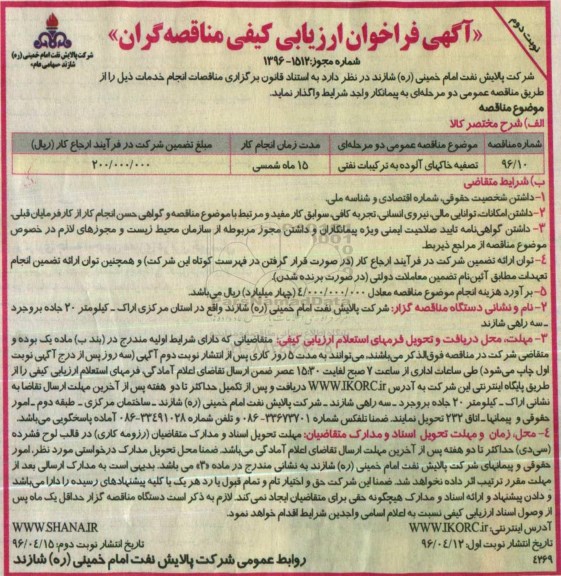 نوبت دوم
«آگهی فراخوان ارزیابی کیفی مناقصه گران»
شماره مجوز:۱۵۱۲-۱۳۹۶
شرکت پالایش نفت امام خمینی (ره)
شازند «سهامی عام»
شرکت پالایش نفت امام خمینی (ره) شازند در نظر دارد به استناد قانون برگزاری مناقصات انجام خدمات ذیل را از
طریق مناقصه عمومی دو مرحله‌ای به پیمانکار واجد شرایط واگذار نماید.
موضوع مناقصه
الف) شرح مختصر کالا
شماره مناقصه | موضوع مناقصه عمومی دو مرحله‌ای | مدت زمان انجام کار | مبلغ تضمین شرکت در فرآیند ارجاع کار (ریال)
۹۶/۱۰ | تصفیه خاکهای آلوده به ترکیبات نفتی | ۱۵ ماه شمسی | ۲۰۰/۰۰۰/۰۰۰
ب) شرایط متقاضی
۱- داشتن شخصیت حقوقی، شماره اقتصادی و شناسه ملی.
۲- داشتن امکانات، توانایی مالی، نیروی انسانی، تجربه کافی، سوابق کار مفید و مرتبط با موضوع مناقصه و گواهی حسن انجام کار از کارفرمایان قبلی.
۳- داشتن گواهی‌نامه تایید صلاحیت ایمنی ویژه پیمانکاران و داشتن مجوز مربوطه از سازمان محیط زیست و مجوزهای لازم در خصوص
موضوع مناقصه از مراجع ذیربط.
۴- توان ارائه تضمین شرکت در فرآیند ارجاع کار (در صورت قرار گرفتن در فهرست کوتاه این شرکت) و همچنین توان ارائه تضمین انجام
تعهدات مطابق آئین‌نام تضمین معاملات دولتی (در صورت برنده شدن).
۵- برآورد هزینه انجام موضوع مناقصه معادل ۴/۰۰۰/۰۰۰/۰۰۰ (چهار میلیارد) ریال می‌باشد.
۲- نام و نشانی دستگاه مناقصه گزار: شرکت پالایش نفت امام خمینی (ره) شازند واقع در استان مرکزی اراک - کیلومتر ۲۰ جاده بروجرد
- سه راهی شازند
۳- مهلت، محل دریافت و تحویل فرمهای استعلام ارزیابی کیفی: متقاضیانی که دارای شرایط اولیه مندرج در (بند ب) ماده یک بوده و
متقاضی شرکت در مناقصه فوق‌الذکر می‌باشند، می‌توانند به مدت ۵ روز کاری پس از انتشار نوبت دوم آگهی (سه روز پس از درج آگهی نوبت
اول چاپ می‌شود) طی ساعات اداری از ساعت ۷ صبح لغایت ۱۵:۳۰ عصر ضمن ارسال تقاضای اعلام آمادگی، فرمهای استعلام ارزیابی کیفی را از
طریق پایگاه اینترنتی این شرکت به آدرس WWW.IKORC.ir دریافت و پس از تکمیل حداکثر تا دو هفته پس از آخرین مهلت ارسال تقاضا به
نشانی اراک - کیلومتر ۲۰ جاده بروجرد - سه راهی شازند - شرکت پالایش نفت امام خمینی (ره) شازند - ساختمان مرکزی - طبقه دوم - امور
حقوقی و پیمانها - اتاق ۲۳۲ تحویل نمایند. ضمنا تلفکس شماره ۳۳۶۷۳۷۰۱-۰۸۶ و تلفن شماره ۳۳۴۹۱۰۲۸-۰۸۶ آماده پاسخگویی می‌باشد.
۴- محل، زمان و مهلت تحویل اسناد و مدارک متقاضیان: مهلت تحویل اسناد و مدارک متقاضیان (رزومه کاری) در قالب لوح فشرده
(سی‌دی) حداکثر تا دو هفته پس از آخرین مهلت ارسال تقاضای اعلام آمادگی می‌باشد. ضمنا محل تحویل مدارک درخواستی مورد نظر، امور
حقوقی و پیمانهای شرکت پالایش نفت امام خمینی (ره) شازند به نشانی مندرج در ماده «۳» می باشد. بدیهی است به مدارک ارسالی بعد از
مهلت مقرر ترتیب اثر داده نخواهد شد. ضمنا این شرکت حق و اختیار تام و تمام قبول یا رد هر یک یا کلیه پیشنهادهای رسیده را دارا می‌باشد
و دادن پیشنهاد و ارائه اسناد و مدارک هیچگونه حقی برای متقاضیان ایجاد نمی‌کند. لازم به ذکر است دستگاه مناقصه گزار حداقل یک ماه پس
از وصول اسناد ارزیابی کیفی نسبت به اعلام اسامی واجدین شرایط اقدام خواهد نمود.
آدرس اینترنتی: WWW.IKORC.ir
WWW.SHANA.IR
تاریخ انتشار نوبت اول: ۹۶/۰۴/۱۲
تاریخ انتشار نوبت دوم: ۹۶/۰۴/۱۵
۴۳۶۹
روابط عمومی شرکت پالایش نفت امام خمینی (ره) شازند